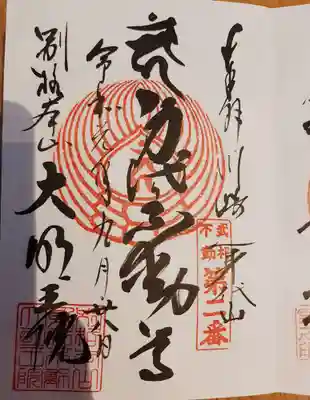 奉拝 川崎
武相不動
第二番
身代不動尊
令和元年九月廿八日
別格本山 大明王院